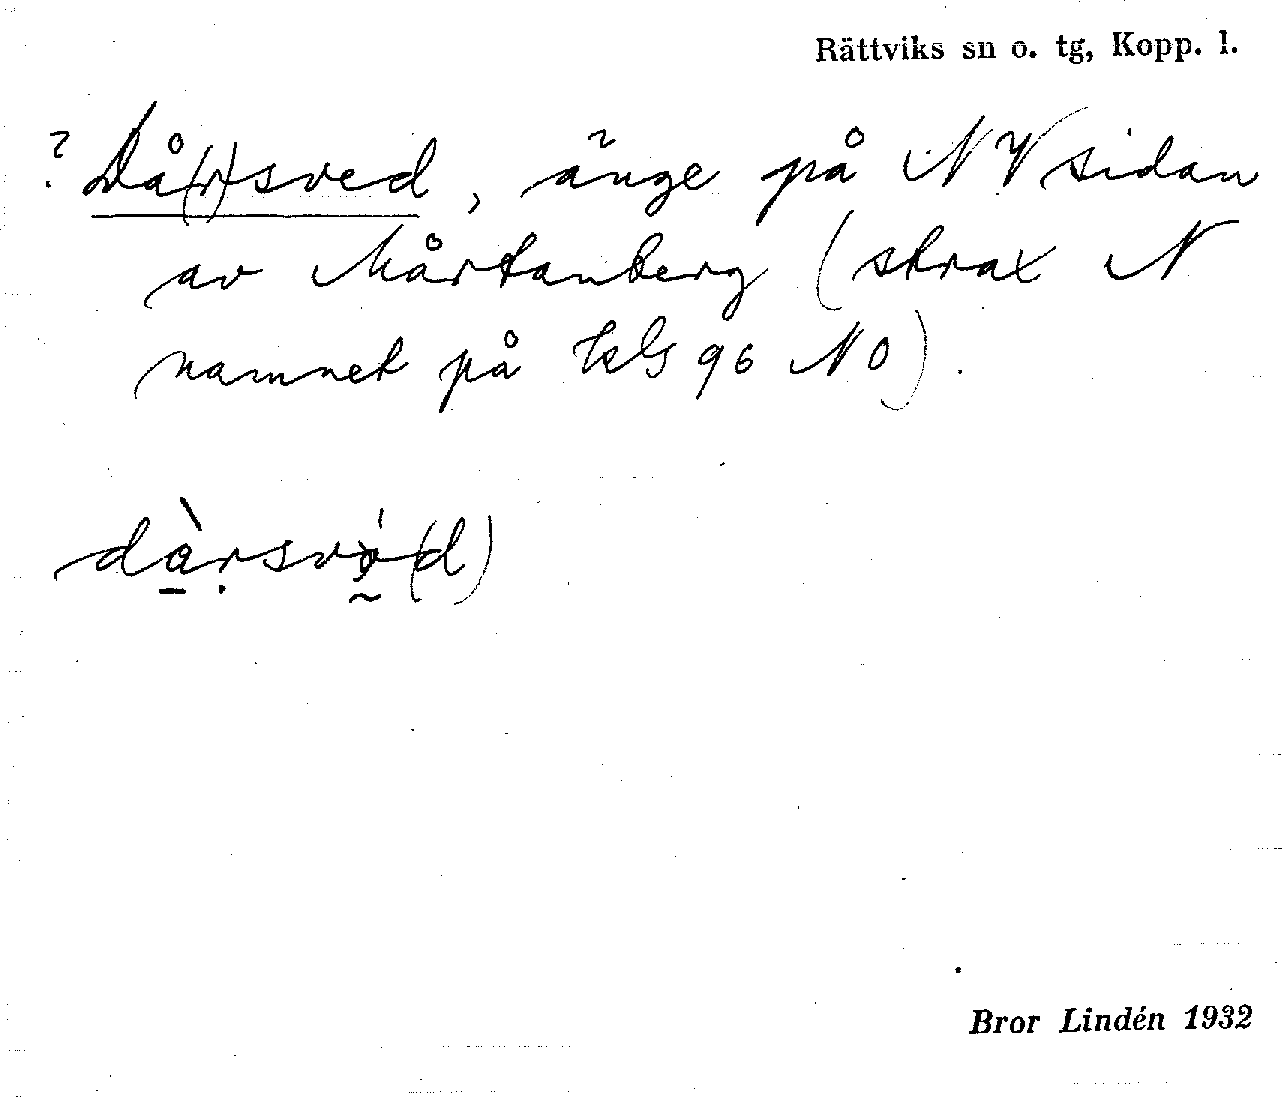 Rättviks sn o. tg, Kopp. l.
? Då(r)sved, änge på NV sidan
av Mårtanberg (strax N
namnet på kbl 96 NO).
dàrsvǿ(d)
Bror Lindén 1932